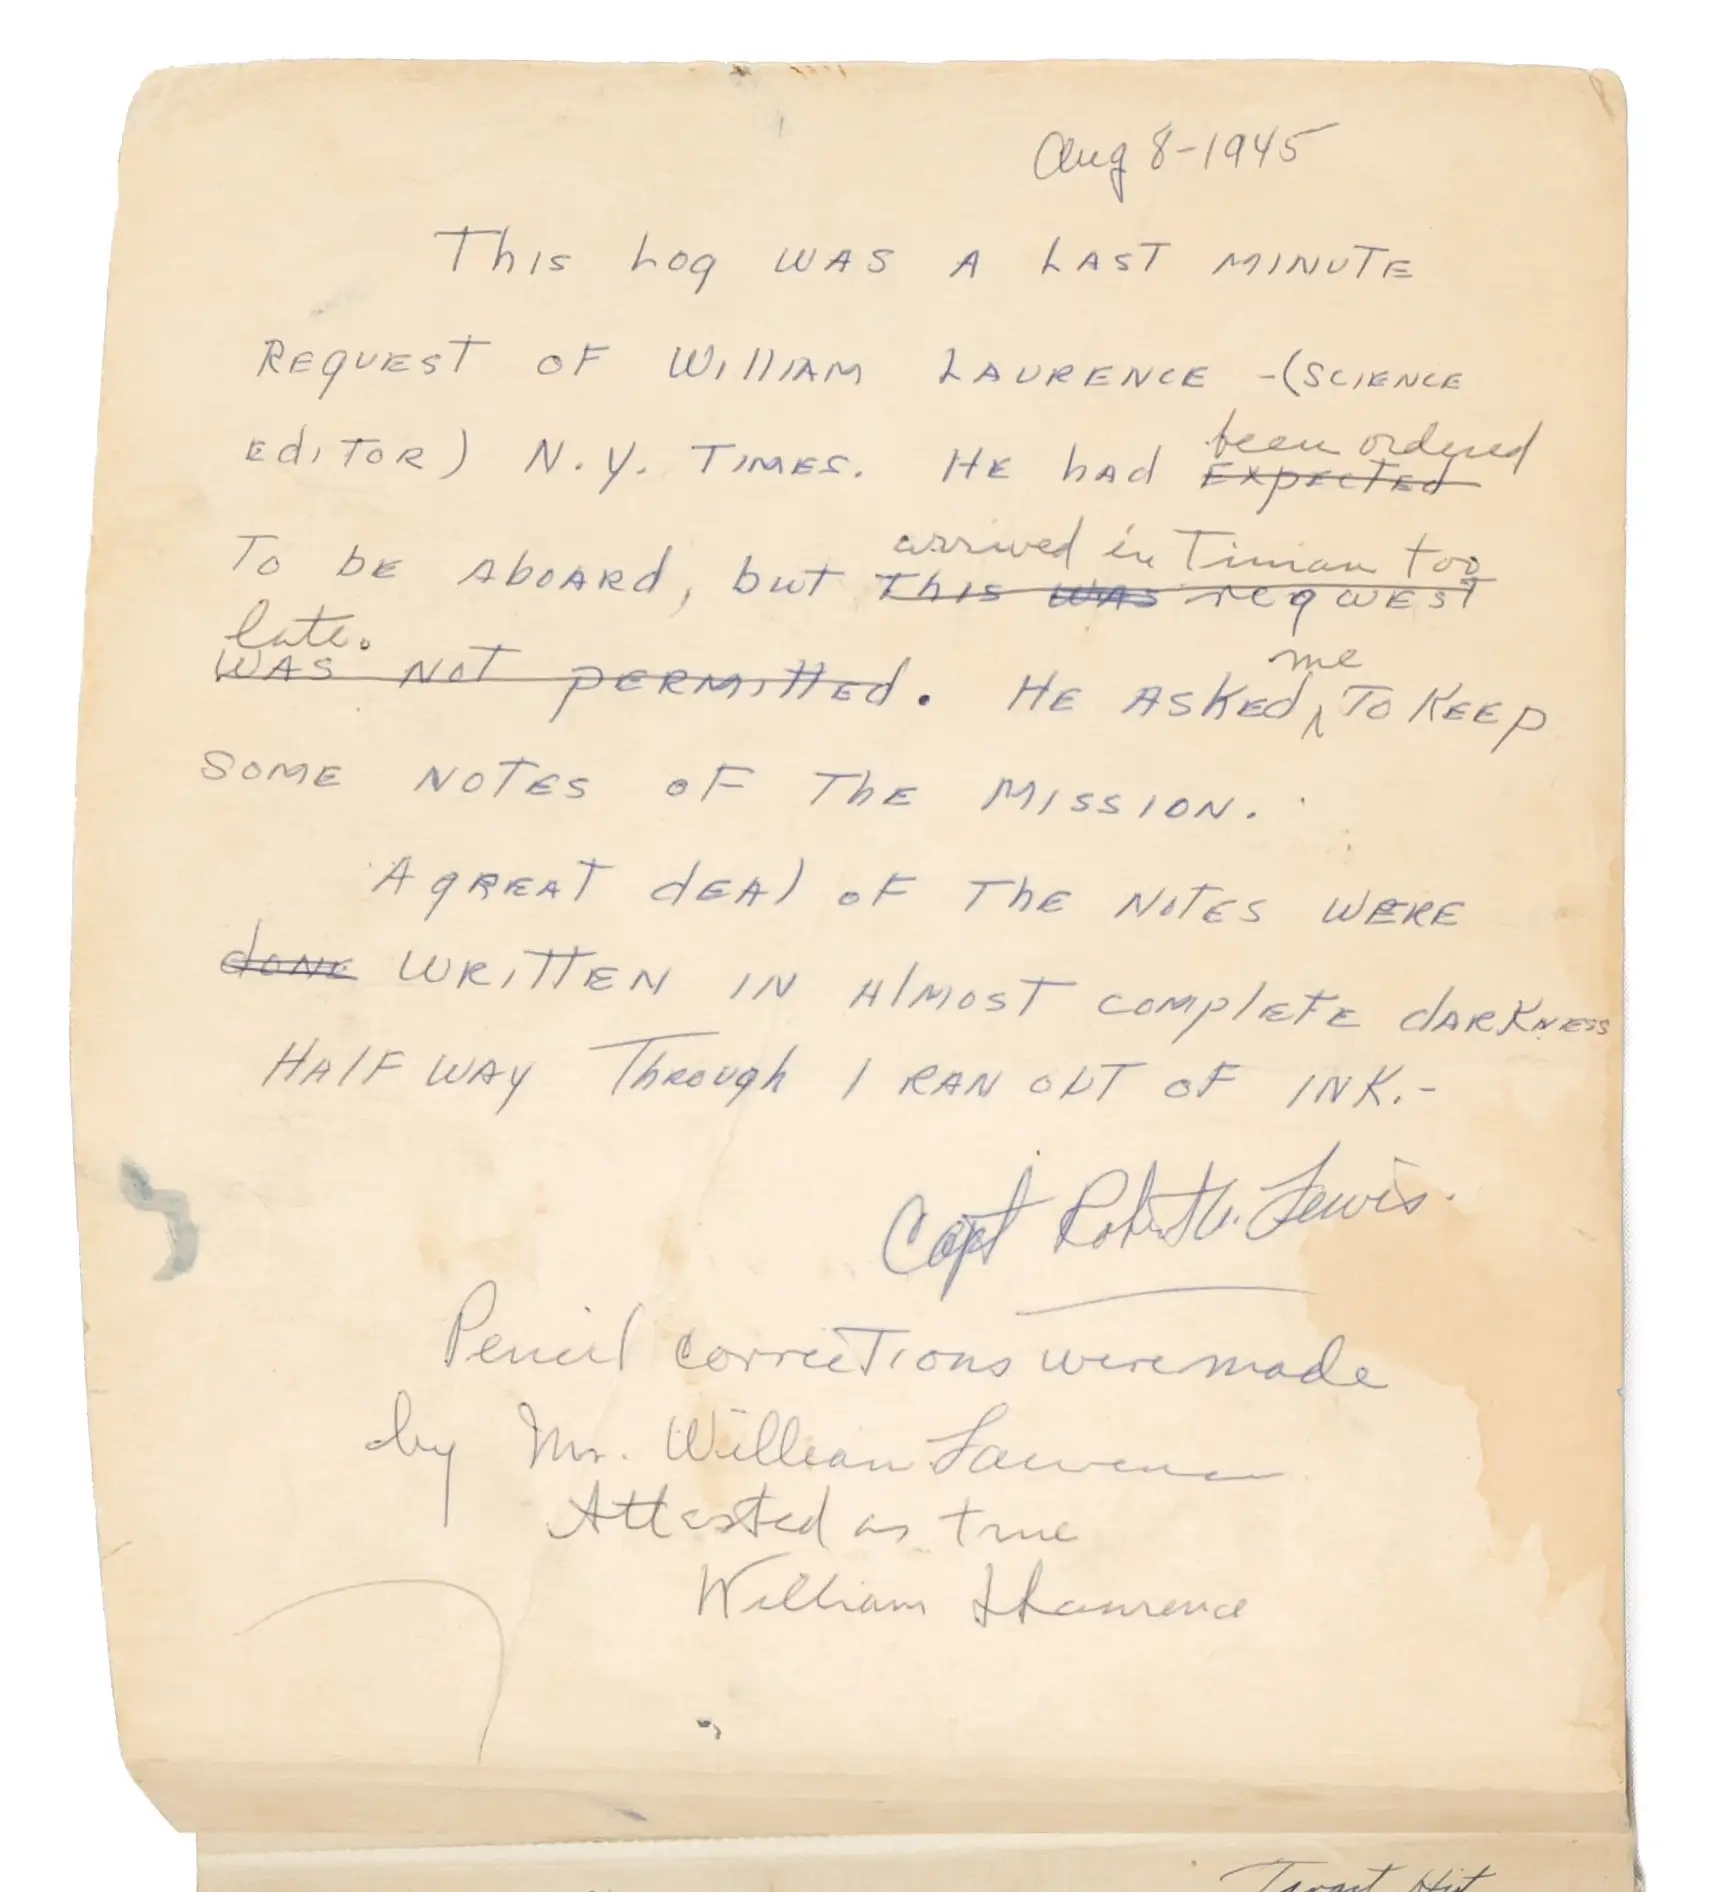 Aug 8-1945
This Log was a last minute
request of William Laurence -(science
been ordered
editor) N.Y. Times. He had expected
arrived in Tinian too
to be aboard, but this was request
late.
was not permitted. He asked me to keep
some notes of the mission.
A great deal of the notes were
done written in almost complete darkness
Half way through I ran out of ink.-
Capt Robert A. Lewis.
Pencil corrections were made
by Mr. William Laurence
Attested as true
William L Laurence
Target Hit